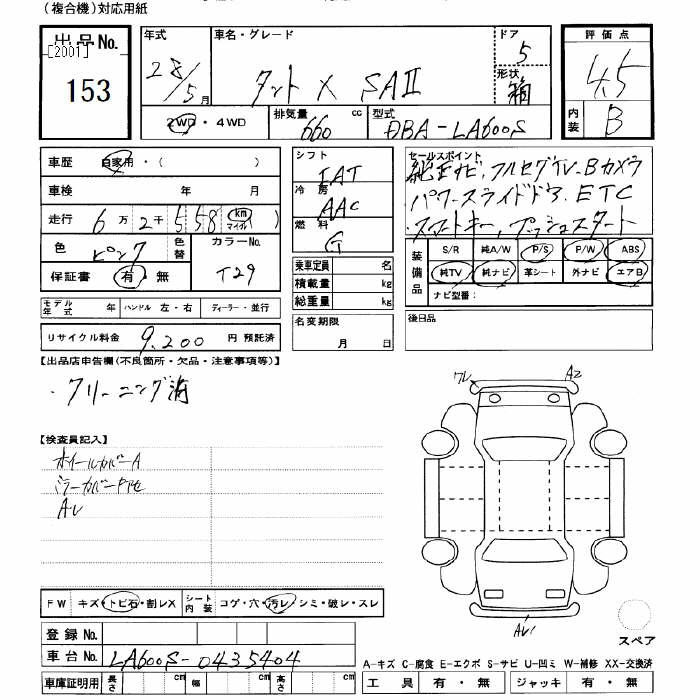 (複合機)対応用紙
出品No. 年式 車名・グレード ドア 5 評価点
[2001]
153 28/5月 タント X SAⅡ 形状 箱 4.5
2WD・4WD 排気量 660 cc 型式 DBA-LA600S 内装 B
車歴 自家用・( )
車検 年 月
走行 6万2千558 km マイル
色 ピンク 色替 カラーNo. T29
保証書 有・無
シフト IAT
冷房 AAC
燃料 G
乗車定員 名
積載量 kg
総重量 kg
セールスポイント
純正ナビ.フルセグTV.Bカメラ
パワースライドドア.ETC
スマートキー,プッシュスタート
装備品 S/R 純A/W P/S P/W ABS
純TV 純ナビ 革シート 外ナビ エアB
ナビ型番:
モデル年式 年 ハンドル 左・右 ディーラー・並行
名変期限 月 日
後日品
リサイクル料金 9,200 円 預託済
【出品店申告欄(不良箇所・欠品・注意事項等)】
・クリーニング済
ワレ A2
【検査員記入】
ホイールカバーA
ミラーカバー
Aレ
FW キズ・トビ石・割レX シート内装 コゲ・穴・汚レ・シミ・破レ・スレ
スペア
登録No.
車台No. LA600S-0435404
A-キズ C-腐食 E-エクボ S-サビ U-凹ミ W-補修 XX-交換済
車庫証明用 長さ cm 幅 cm 高さ cm 工具 有・無 ジャッキ 有・無